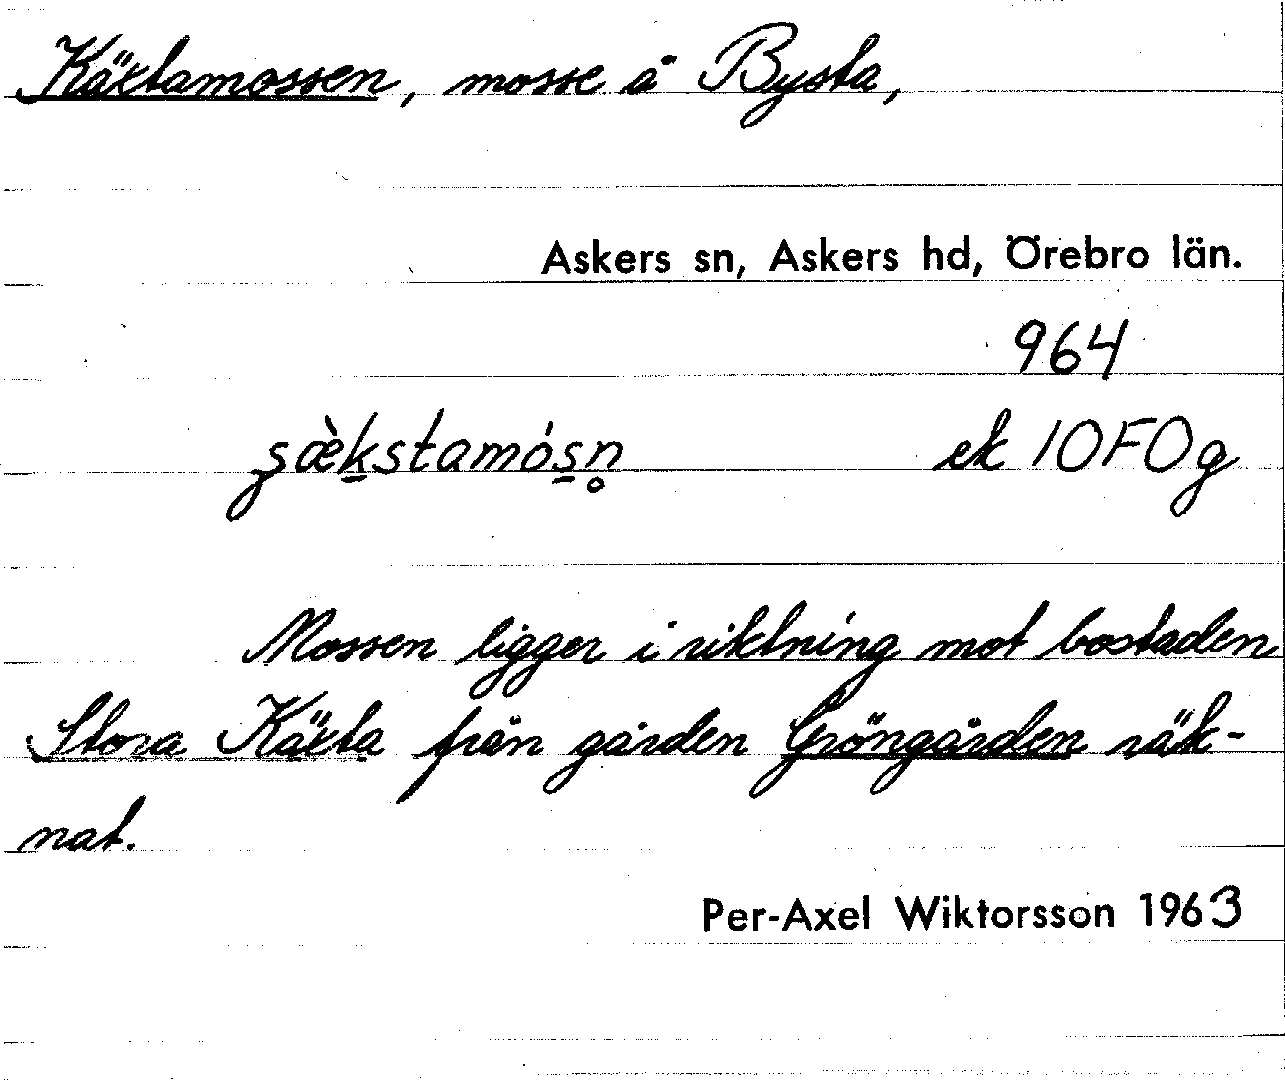 Käxtamossen, mosse å Bysta,
Askers sn, Askers hd, Örebro län.
964
ek 10F0g
Mossen ligger i riktning mot bostaden
Stora Käxta från gården Gröngården räk-
nat.
Per-Axel Wiktorsson 1963